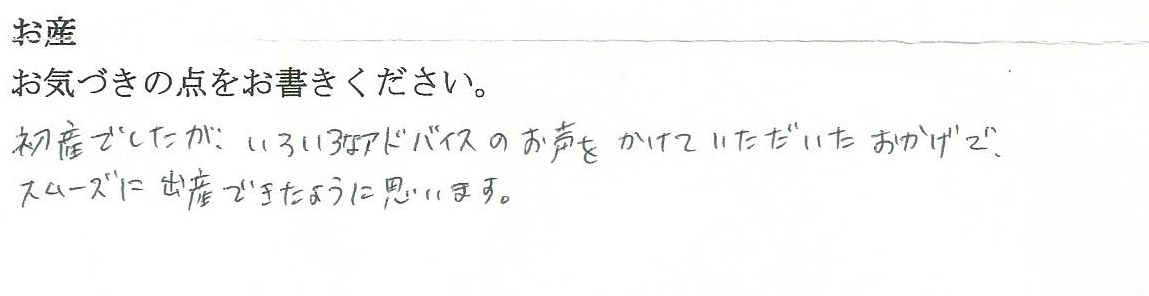 お産
お気づきの点をお書きください。
初産でしたが、いろいろなアドバイスのお声をかけていただいたおかげで、
スムーズに出産できたように思います。